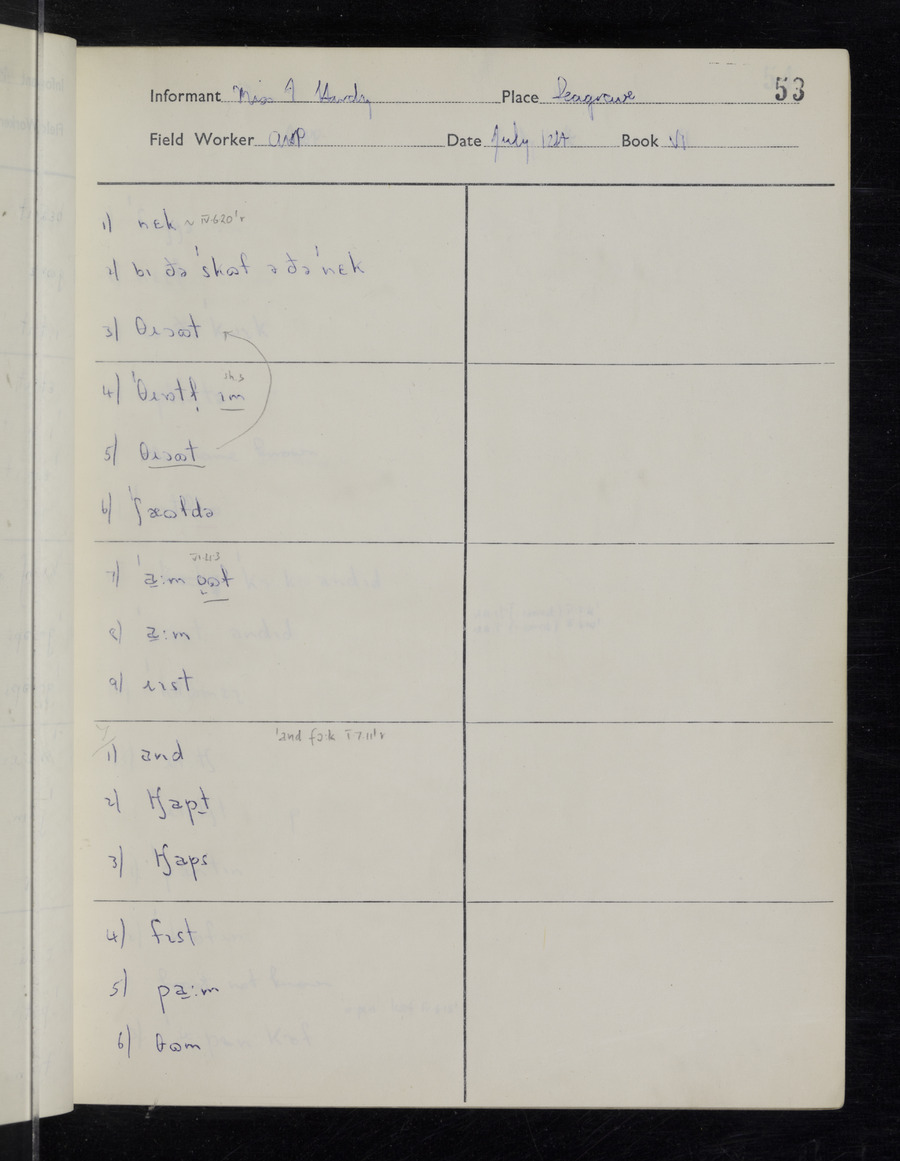 Informant Miss J Hardy Place Seagrave 53
Field Worker AMP Date July 12th Book VI
1) nɛk ~ IV.6.20 'r
2) bɪ ðə ˈskɷf ə ðə ˈnɛk
3) θɹɔɷt
sh s
4) ˈθɹɒtɫ̩ ɪm
5) θɹɔɷt
6) ˈʃæɷldə
VI.11.3
7) ˈa̱ːm ɷt
8) a̱ːm
9) ɹɪst
7 ˈand fɔːk I.7.11 'r
1) and
2) tʃapt
3) tʃaps
4) fɪst
5) pa̱ːm
6) θɷm